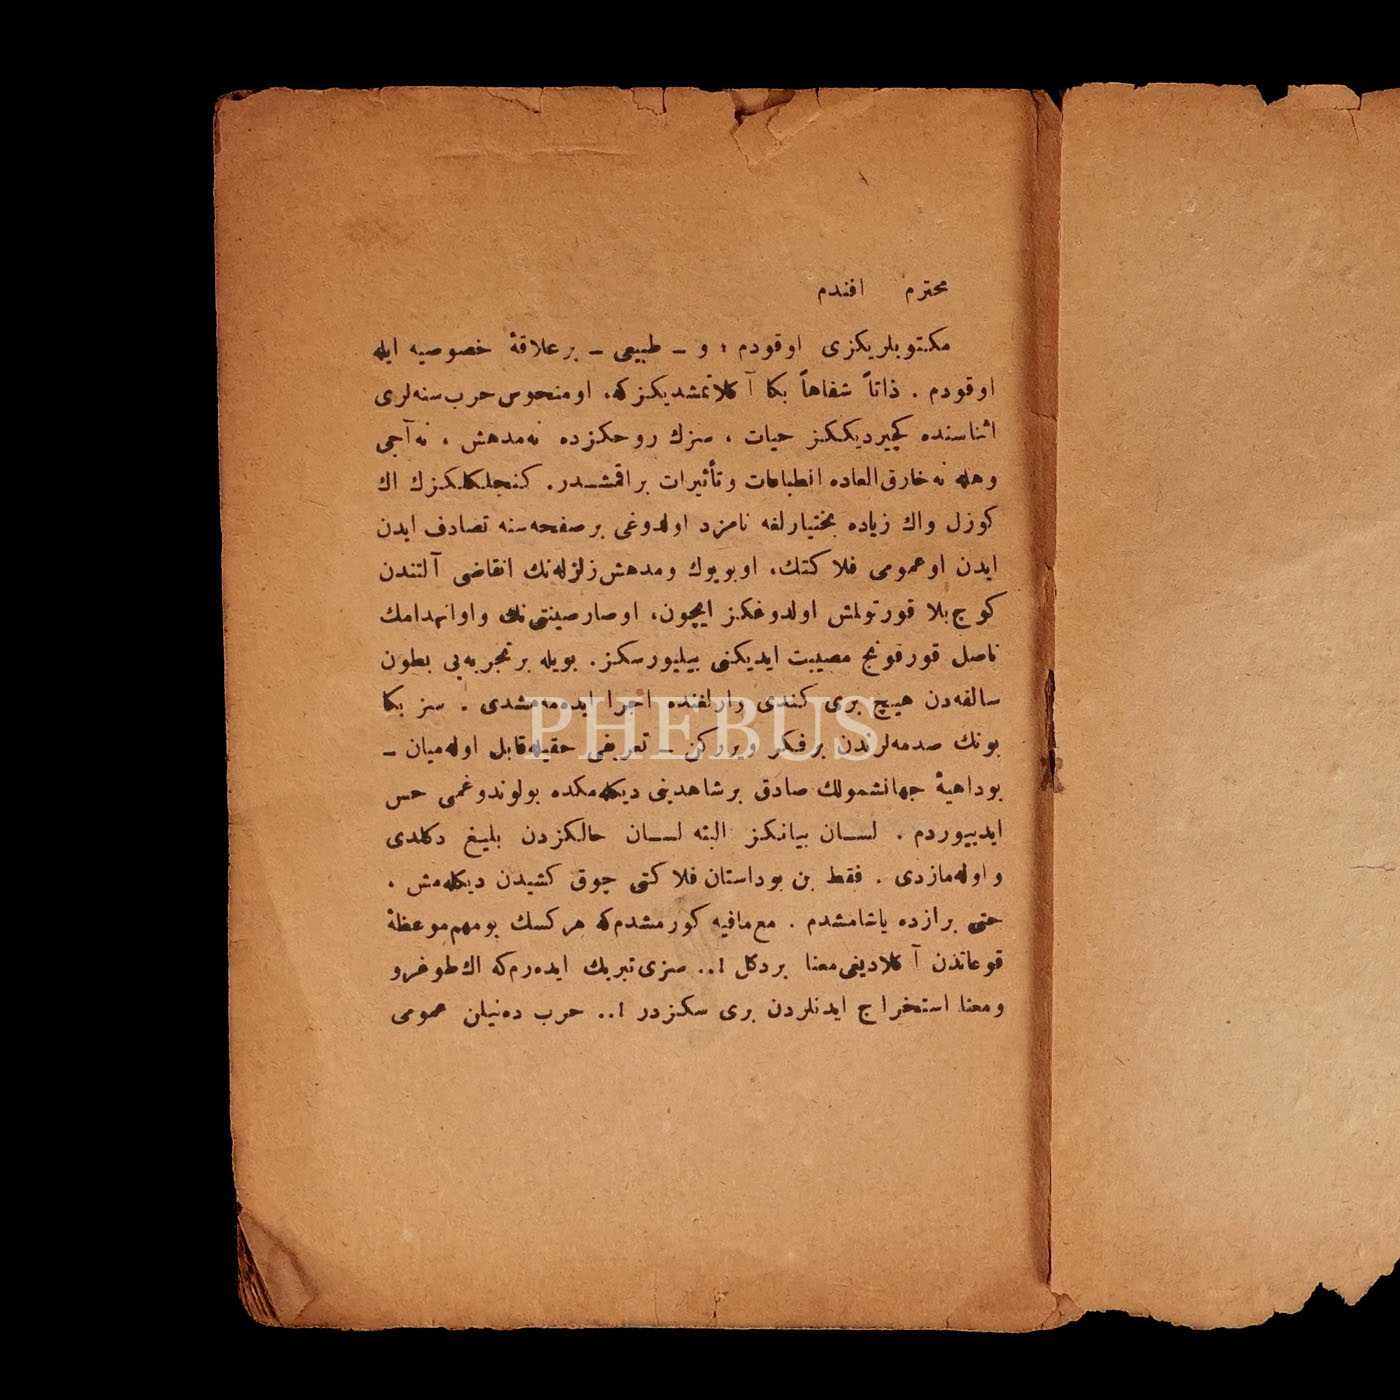 محترم افندم
مكتوبلريكزى اوقودم ؛ و ـ طبيعى ـ بر علاقۀ خصوصيه ايله
اوقودم . ذاتاً شفاهاً بكا آكلاتمشديكزكه، او منحوس حرب سنه‌لرى
اثناسنده كچيرديككز حيات ، سزك روحكزده نه مدهش ، نه آجى
وهله نه خارق‌العاده انطباعات وتأثيرات براقمشـدر. كنجلككزك اك
كوزل واك زياده بختيارلغه نامزد اولدوغى بر صفحه‌سنه تصادف ايدن
ايدن او عمومى فلاكتك، او بويوك ومدهش زلزله‌نك انقاضى آلتندن
كوج‌بلا قورتولمش اولدوغكز ايچون، او صارصينتى‌نك واو انهدامك
ناصل قورقونج مصيبت ايديكنى بيليورسكز. بويله بر تجربه‌يى بطون
سالفه‌دن هيچ برى كندى وارلغنده اجرا ايده‌مه‌مشدى . سز بكا
بونك صدمه‌لرندن بر فكر ويرركن ـ تعريفى حقيله قابل اوله‌ميان ـ
بو داهيۀ جهانشمولك صادق بر شاهدينى ديكله‌مكده بولوندوغمى حس
ايدييوردم . لسـان بيانكز البته لسـان حالكزدن بليغ دكلدى
واوله‌مازدى . فقط بن بو داستان فلاكتى چوق كشيدن ديكله‌مش ،
حتى بر ازده ياشامشدم . مع‌مافيه كورمشدم‌كه هركسك بو مهم موعظۀ
آكلادينى معنا بر دكل !.. سزى تبريك ايده‌رم‌كه اك طوغرو
ومعنا استخراج ايدنلردن برى سكزدر !.. حرب ده‌نيلن عمومى
PHEBUS